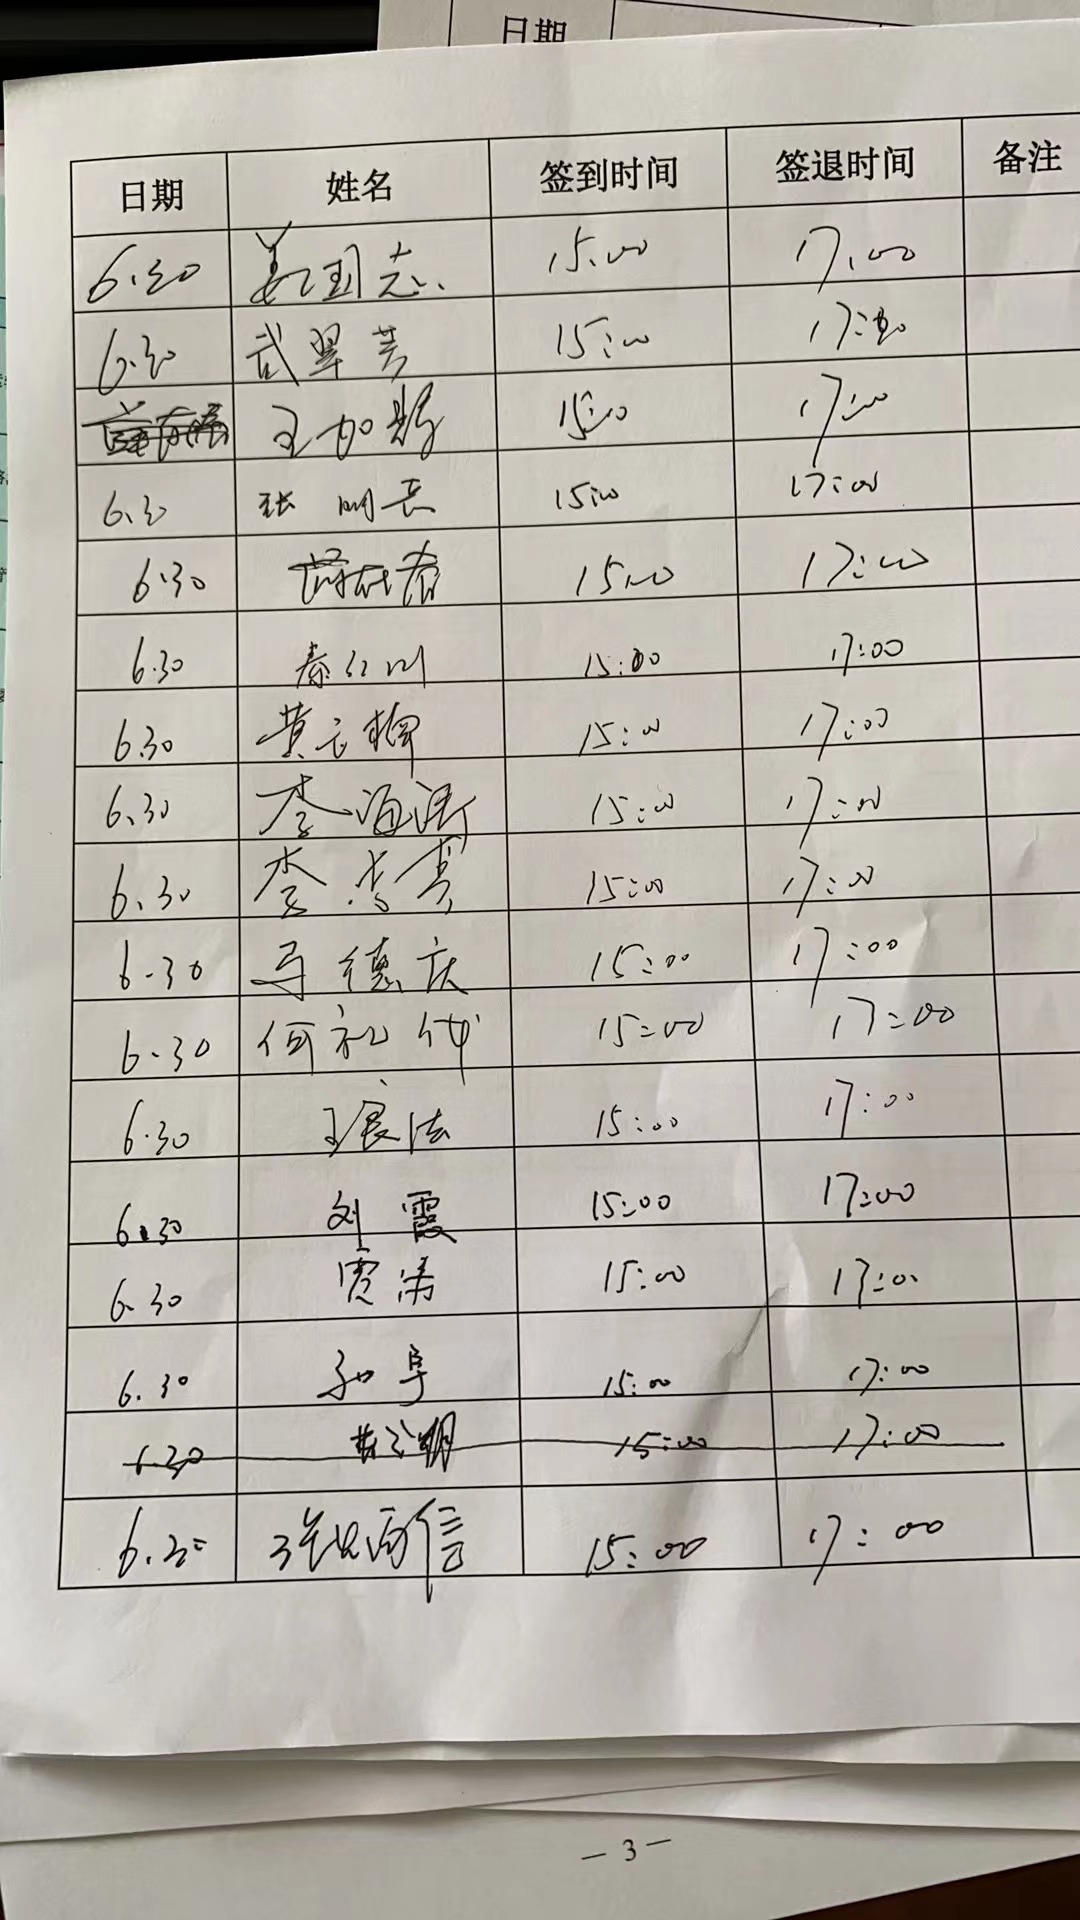 日期
日期 姓名 签到时间 签退时间 备注
6.30 姜国志 15.00 17.00
6.30 武翠芳 15:00 17:00
王加 15:00 17:00
6.30 张明长 15:00 17:00
6.30 15:00 17:00
6.30 秦红川 15:00 17:00
6.30 黄云 15:00 17:00
6.30 李海涛 15:00 17:00
6.30 李秀 15:00 17:00
6.30 马德庆 15:00 17:00
6.30 何礼代 15:00 17:00
6.30 王良法 15:00 17:00
6.30 刘霞 15:00 17:00
6.30 贾涛 15:00 17:00
6.30 15:00 17:00
6.30 15:00 17:00
6.30 信 15:00 17:00
— 3 —